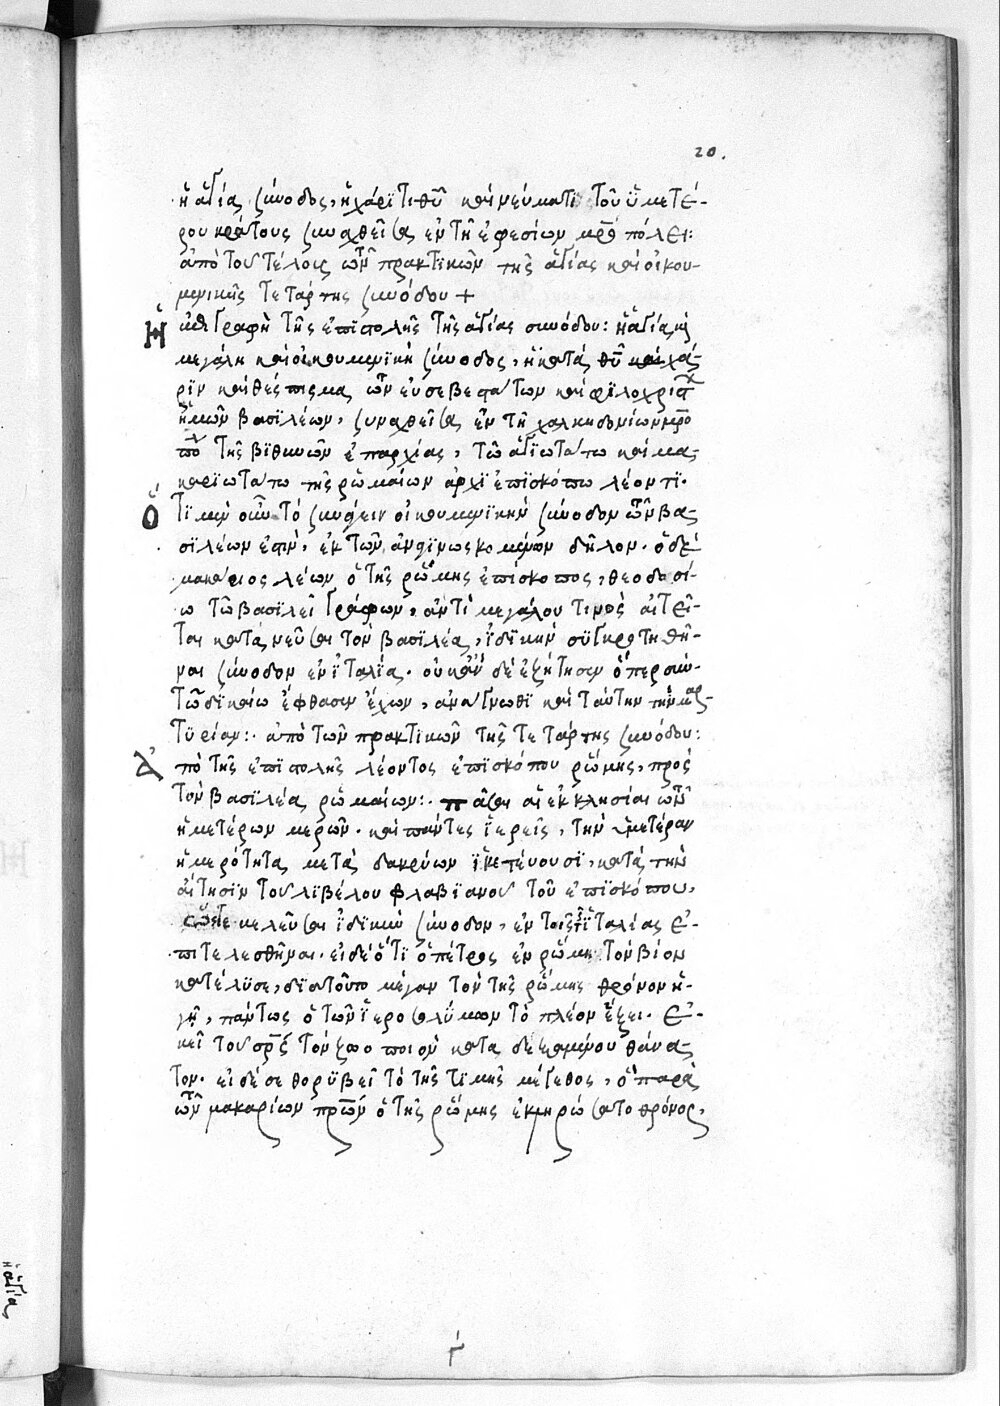 20.
ἡ ἁγία σύνοδος, ἡ χάριτι θ͞υ καὶ νεύματι τοῦ ὑμετέ-
ρου κράτους συναχθεῖσα ἐν τῇ ἐφεσίων μρο πόλει:
ἀπὸ τοῦ τέλους τῶν πρακτικῶν τῆς ἁγίας καὶ οἰκου-
μενικῆς τετάρτης συνόδου +
Ἡ ἐπιγραφὴ τῆς ἐπιστολῆς τῆς ἁγίας συνόδου: ἡ ἁγία κ
μεγάλη καὶ οἰκουμενικὴ σύνοδος, ἡ κατὰ θ͞υ καὶ χά-
ριν καὶ θέσπισμα τῶν εὐσεβεστάτων καὶ φιλοχρίστ
ἡμῶν βασιλέων, συναχθεῖσα ἐν τῇ χαλκηδονίων μρο
πο τῆς βιθυνῶν ἐπαρχίας, τῶ ἁγιωτάτω καὶ μα-
καριωτάτω τῆς ῥωμαίων ἀρχιεπισκόπω λέοντι.
Ὅτι μὲν οὖν τὸ συνάγειν οἰκουμενικὴν σύνοδον τῶν βα-
σιλέων ἐστὶν, ἐκ τῶν ἀνεγνωσκομένων δῆλον. ὁ δὲ
μακάριος λέων ὁ τῆς ῥώμης ἐπίσκοπος, θεοδοσί-
ω τῶ βασιλεῖ γράφων, ἀντὶ μεγάλου τινὸς αἰτεῖ-
ται κατανεῦσαι τὸν βασιλέα, ἰδικὴν συγκροτηθῆ-
ναι σύνοδον ἐν ἰταλία. οὐκ ἂν δὲ ἐζήτησεν ὅπερ σὺν
τῶ δικαίω ἔφθασεν ἔχων, ἀνάγνωθι καὶ ταύτην τὴν μαρ-
τυρίαν:. ἀπὸ τῶν πρακτικῶν τῆς τετάρτης συνόδου:
Ἀπὸ τῆς ἐπιστολῆς λέοντος ἐπισκόπου ῥώμης, πρὸς
τὸν βασιλέα ῥωμαίων:. πᾶσαι αἱ ἐκκλησίαι τῶν
ἡμετέρων μερῶν. καὶ πάντες ἱερεῖς, τὴν ὑμετέραν
ἡμερότητα μετὰ δακρύων ἱκετεύουσι, κατὰ τὴν
αἴτησιν τοῦ λιβέλου φλαβιανοῦ τοῦ ἐπισκόπου,
ὥστε κελεῦσαι ἰδικὴν σύνοδον, ἐν τοῖς τῆς ἰταλίας ἐ-
πιτελεσθῆναι. εἰ δὲ ὅτι ὁ πέτρος ἐν ῥώμη τὸν βίον
κατέλυσε, διατοῦτο μέγαν τὸν τῆς ῥώμης θρόνον ἡ-
γῇ, πάντως ὁ τῶν ἱεροσολύμων τὸ πλέον ἕξει. ἐ-
κεῖ τοῦ σρ͞ς τὸν ζωοποιὸν καταδεξαμένου θάνα-
τον. εἰ δέ σε θορυβεῖ τὸ τῆς τιμῆς μέγεθος, ὃ παρὰ
τῶν μακαρίων πρ͞ων ὁ τῆς ῥώμης ἐκληρώσατο θρόνος,
ἡ ἁγία